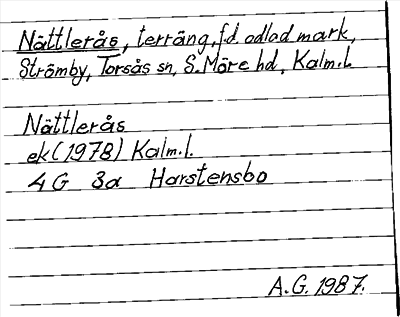 Nättlerås, terräng, f.d. odlad mark,
Strömby, Torsås sn, S. Möre hd, Kalm.l.
Nättlerås
ek (1978) Kalm.l.
4G 3a Harstensbo
A.G. 1987.